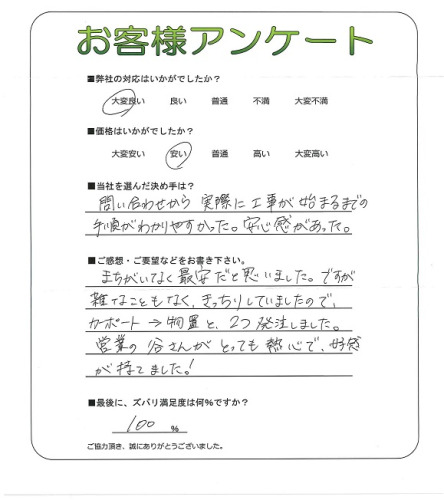 お客様アンケート
■弊社の対応はいかがでしたか?
大変良い 良い 普通 不満 大変不満
■価格はいかがでしたか?
大変安い 安い 普通 高い 大変高い
■当社を選んだ決め手は?
問い合わせから 実際に工事が始まるまでの
手順がわかりやすかった。安心感があった。
■ご感想・ご要望などをお書き下さい。
まちがいなく最安だと思いました。ですが
雑なこともなく、きっちりしていましたので、
カーポート→物置と、2つ発注しました。
営業の谷さんがとっても熱心で、好感
が持てました!
■最後に、ズバリ満足度は何%ですか?
100 %
ご協力頂き、誠にありがとうございました。